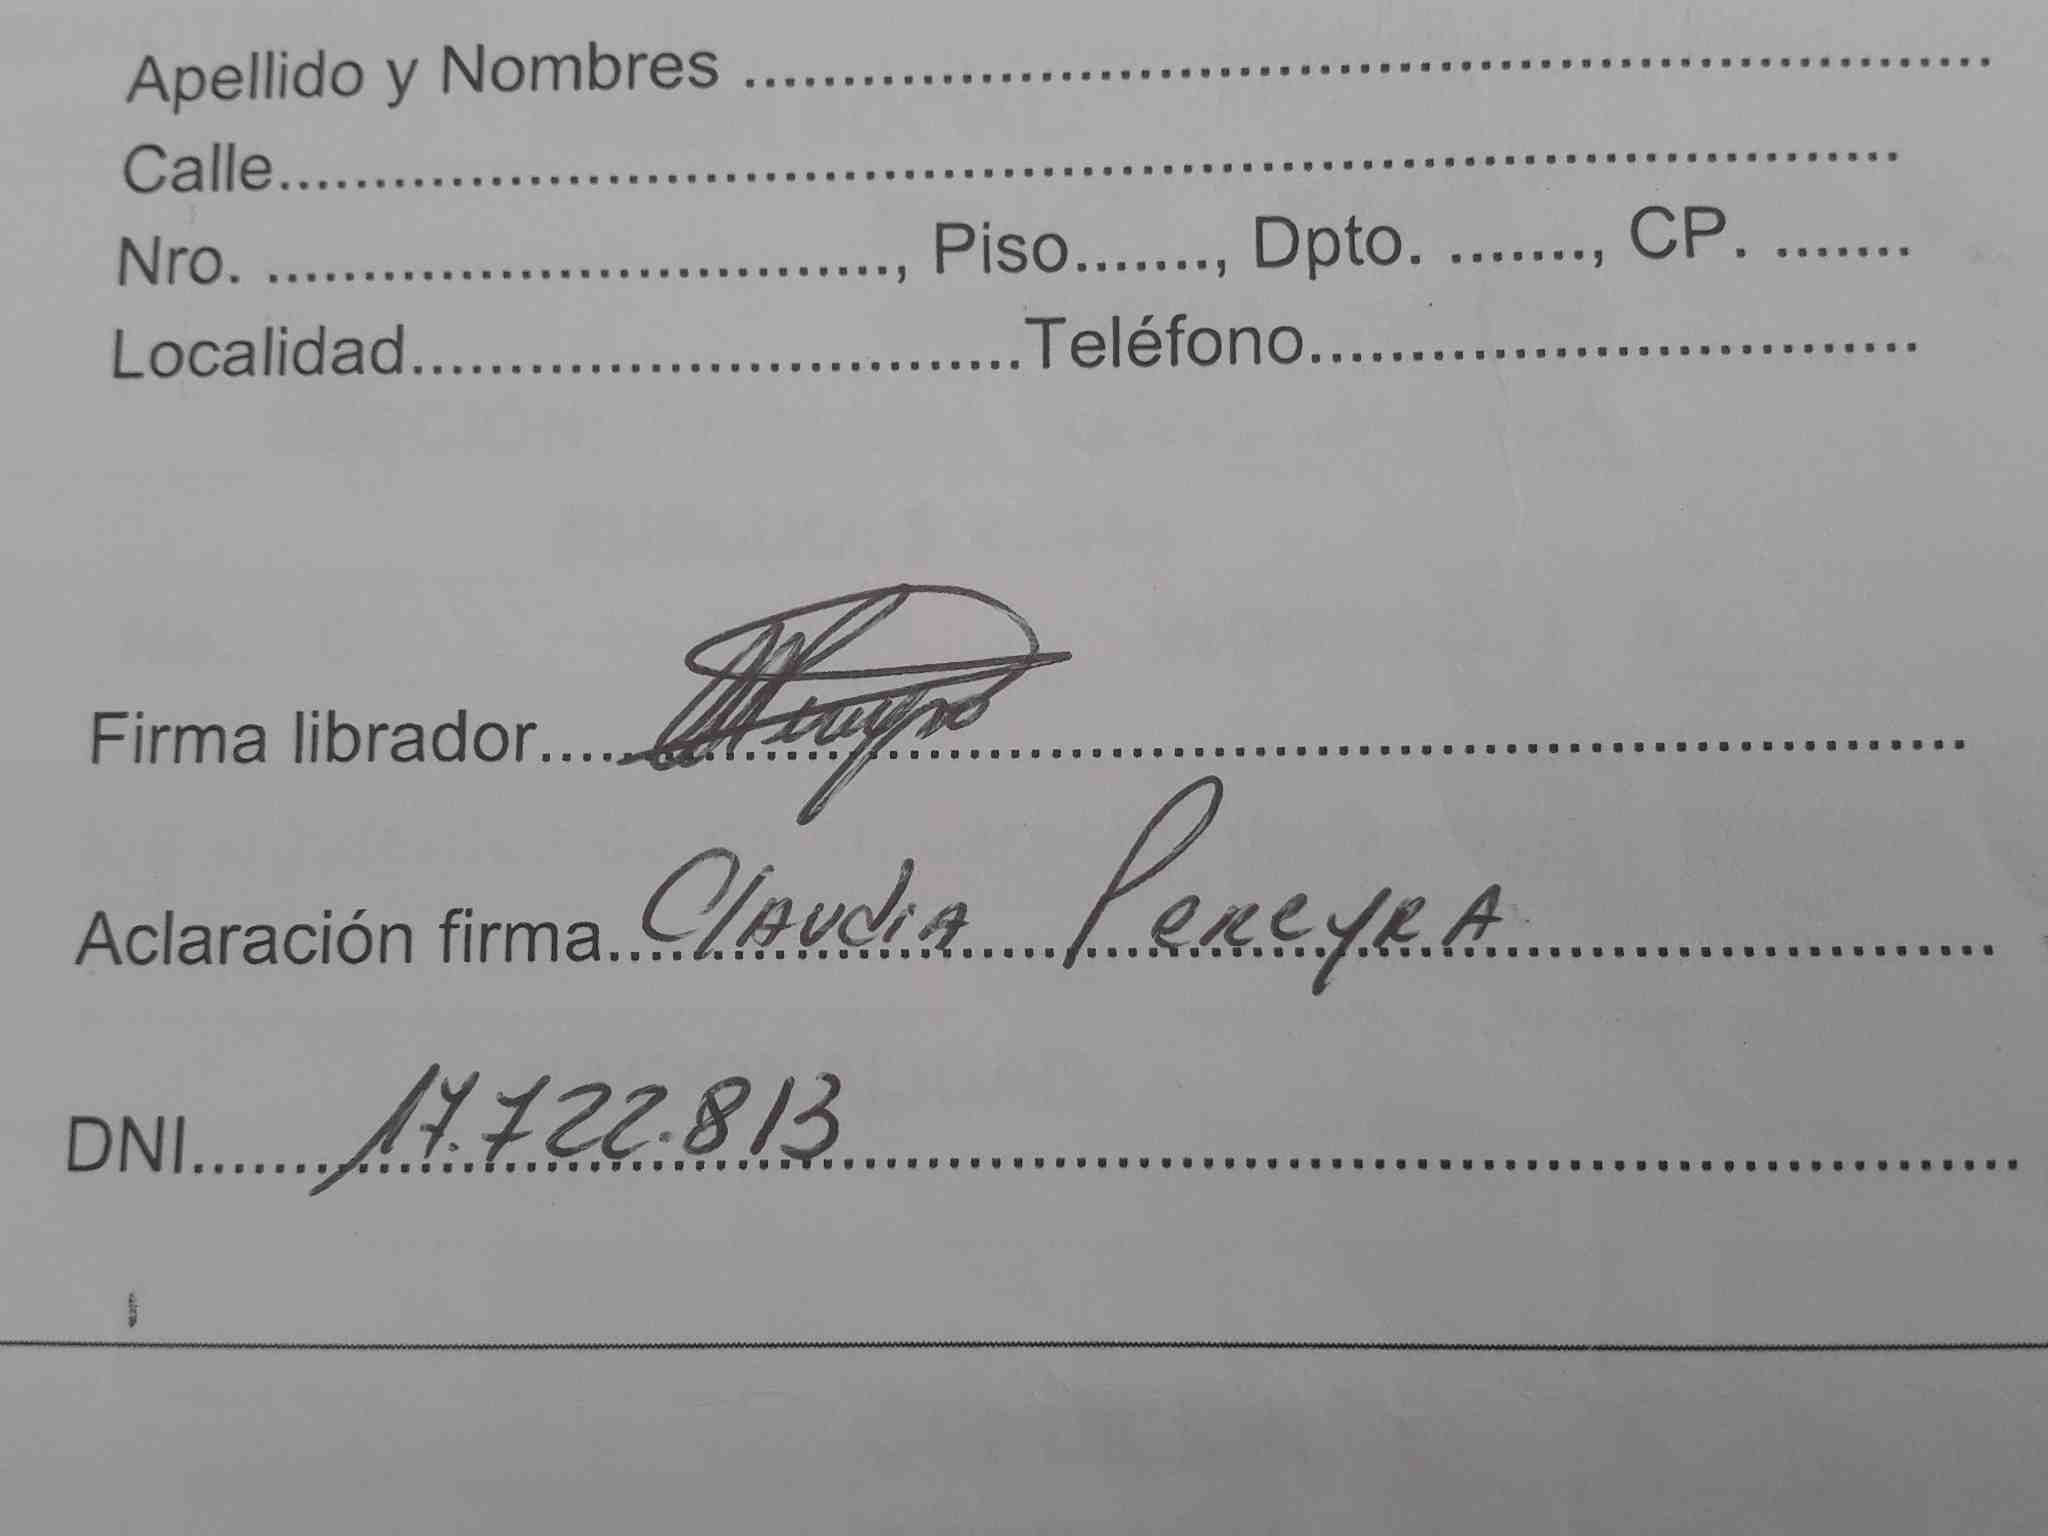 Apellido y Nombres ..............................................................
Calle..............................................................................
Nro. ................................, Piso......., Dpto. ......., CP. .......
Localidad..............................Teléfono..............................
Firma librador......................................................................
Aclaración firma....Claudia Pereyra........................
DNI.......17.722.813..........................................................